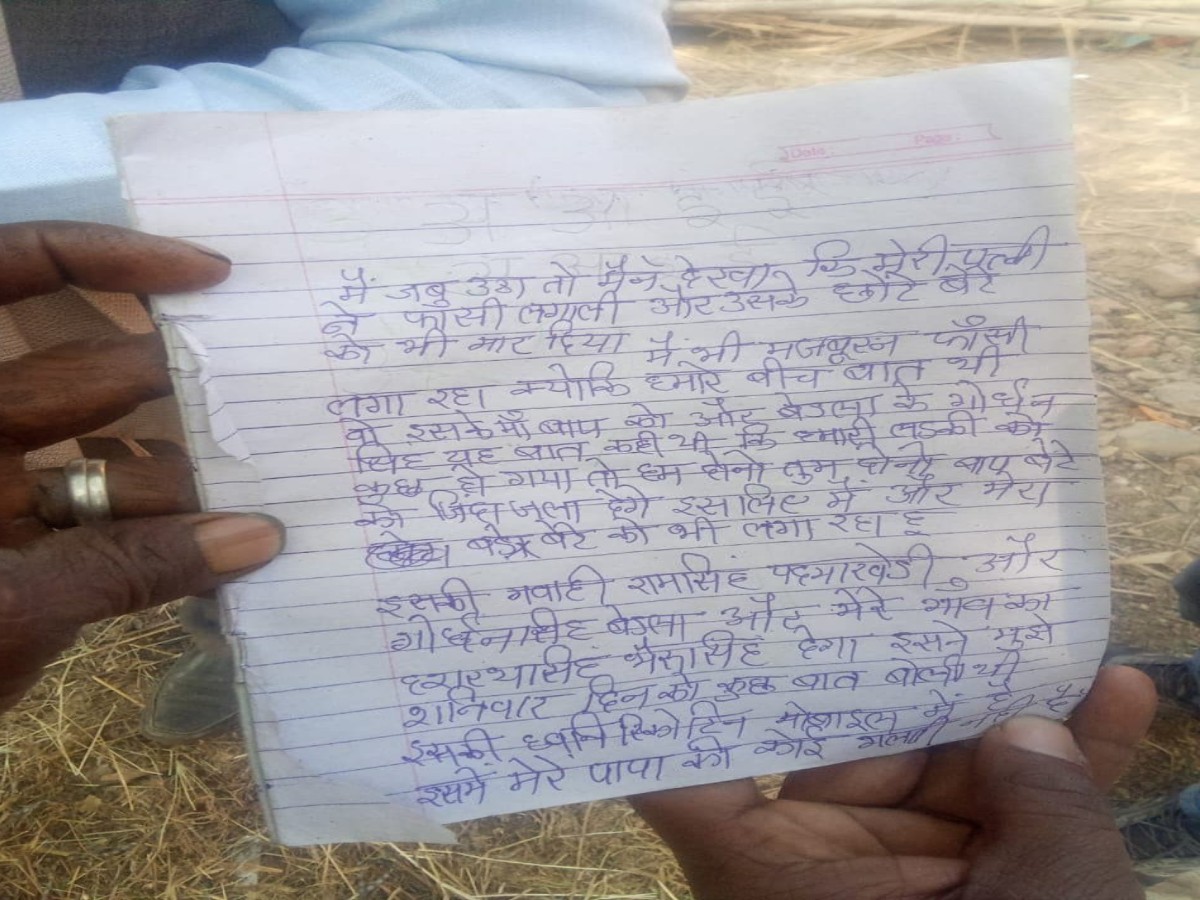 Date: Page:
मैं जब उठा तो मैंने देखा कि मेरी पत्नी
ने फाँसी लगाली और उसके छोटे बेटे
को भी मार दिया मैं भी मजबूरन फाँसी
लगा रहा क्योकि हमारे बीच बात थी
इसके माँ बाप को और बेडला के गोर्धन
सिंह यह बात कही थी कि हमारी लडकी को
कुछ हो गया तो हम दोनो तुम दोनो बाप बेटे
को जिंदा जला देंगे इसलिए मैं और मेरा
बड़े बेटे को भी लगा रहा हु
इसकी गवाही रामसिंह पदमाखेडी और
गोर्धनसिंह बेडला और मेरे गाँव का
भैरूसिंह देगा इसने मुझे
शनिवार दिन को कुछ बात बोली थी
इसकी ध्वनि रिकोर्डिन मोबाइल में है
इसमे मेरे पापा की कोई गलती नही है